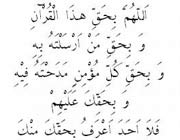 اَللّٰهُمَّ بِحَقِّ هٰذَا الْقُرْاٰنِ
وَ بِحَقِّ مَنْ اَرْسَلْتَهُ بِهِ
وَ بِحَقِّ كُلِّ مُؤْمِنٍ مَدَحْتَهُ فِيْهِ
وَ بِحَقِّكَ عَلَيْهِمْ
فَلَا اَحَدَ اَعْرَفُ بِحَقِّكَ مِنْكَ